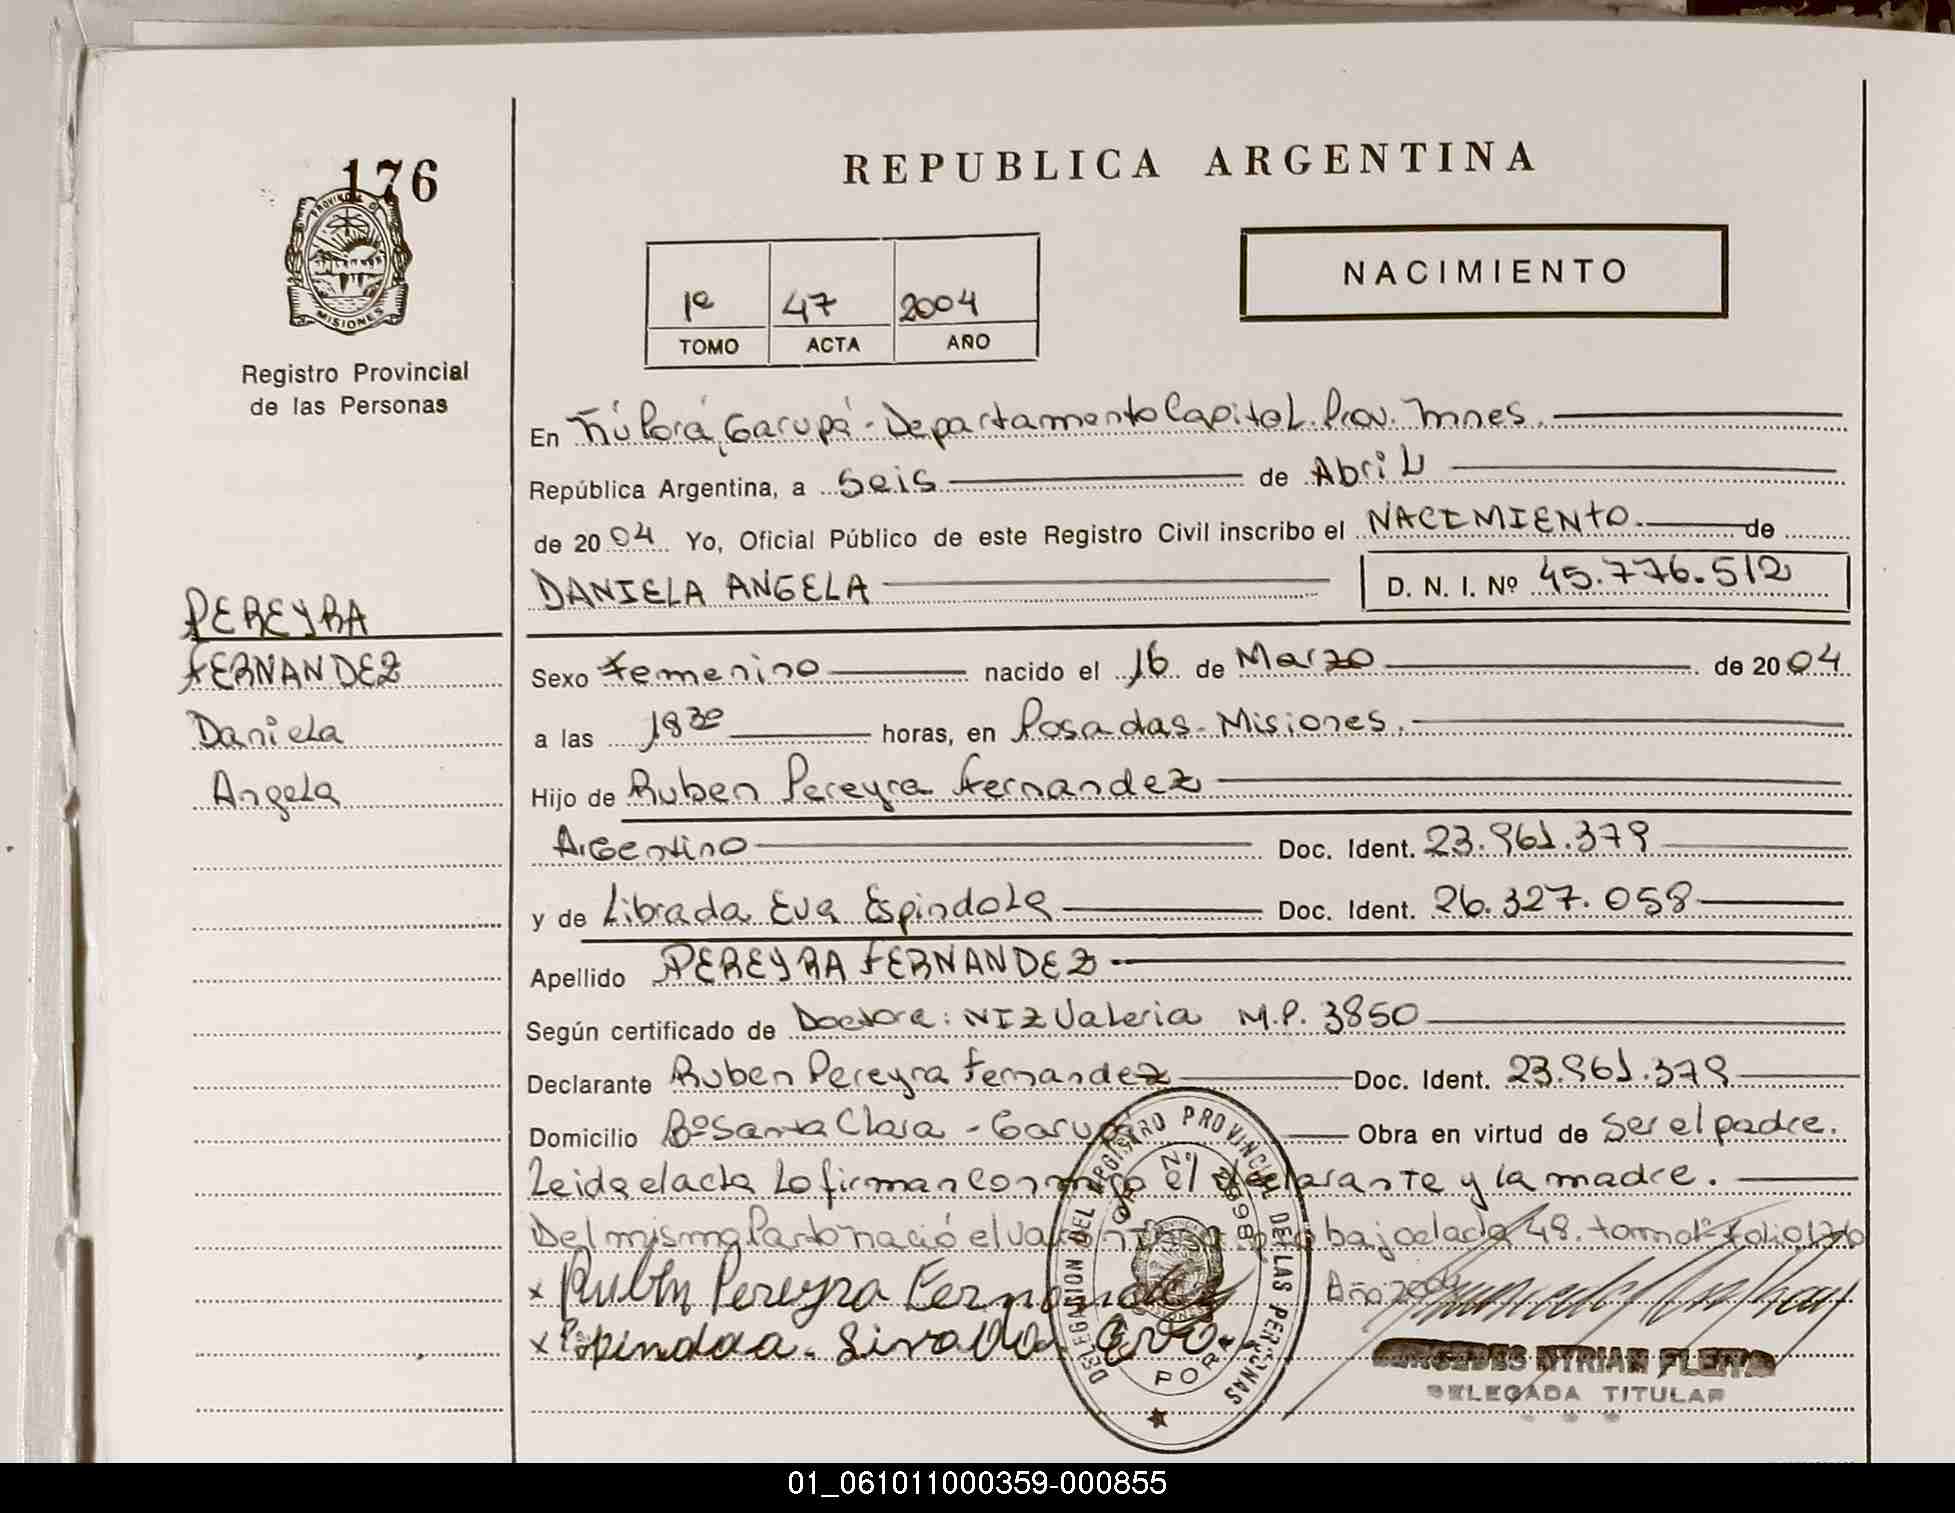 176
PROVINCIA DE
MISIONES
Registro Provincial
de las Personas
REPUBLICA ARGENTINA
NACIMIENTO
1º 47 2004
TOMO ACTA AÑO
En Ñú Porá, Garupá - Departamento Capital. Prov. Mnes.
República Argentina, a seis de Abril
de 2004 Yo, Oficial Público de este Registro Civil inscribo el NACIMIENTO. de
DANIELA ANGELA D. N. I. Nº 45.776.512
PEREYRA
FERNANDEZ
Daniela
Angela
Sexo Femenino nacido el 16 de Marzo de 2004
a las 18 30 horas, en Posadas - Misiones.
Hijo de Ruben Pereyra Fernandez
Argentino Doc. Ident. 23.961.379
y de Librada Eva Espindola Doc. Ident. 26.327.058
Apellido PEREYRA FERNANDEZ
Según certificado de Doctora: NIZ Valeria M.P. 3850
Declarante Ruben Pereyra Fernandez Doc. Ident. 23.961.379
Domicilio Bº Santa Clara - Garupá Obra en virtud de ser el padre.
Leida el acta lo firman conmigo el declarante y la madre.
Del mismo Parto nació el bajo el acta 48. tomo 1º folio
Año
x Ruben Pereyra Fernandez
x Espindola
DELEGACION DEL REGISTRO PROVINCIAL DE LAS PERSONAS
PORA
FLEITAS
DELEGADA TITULAR
01_061011000359-000855